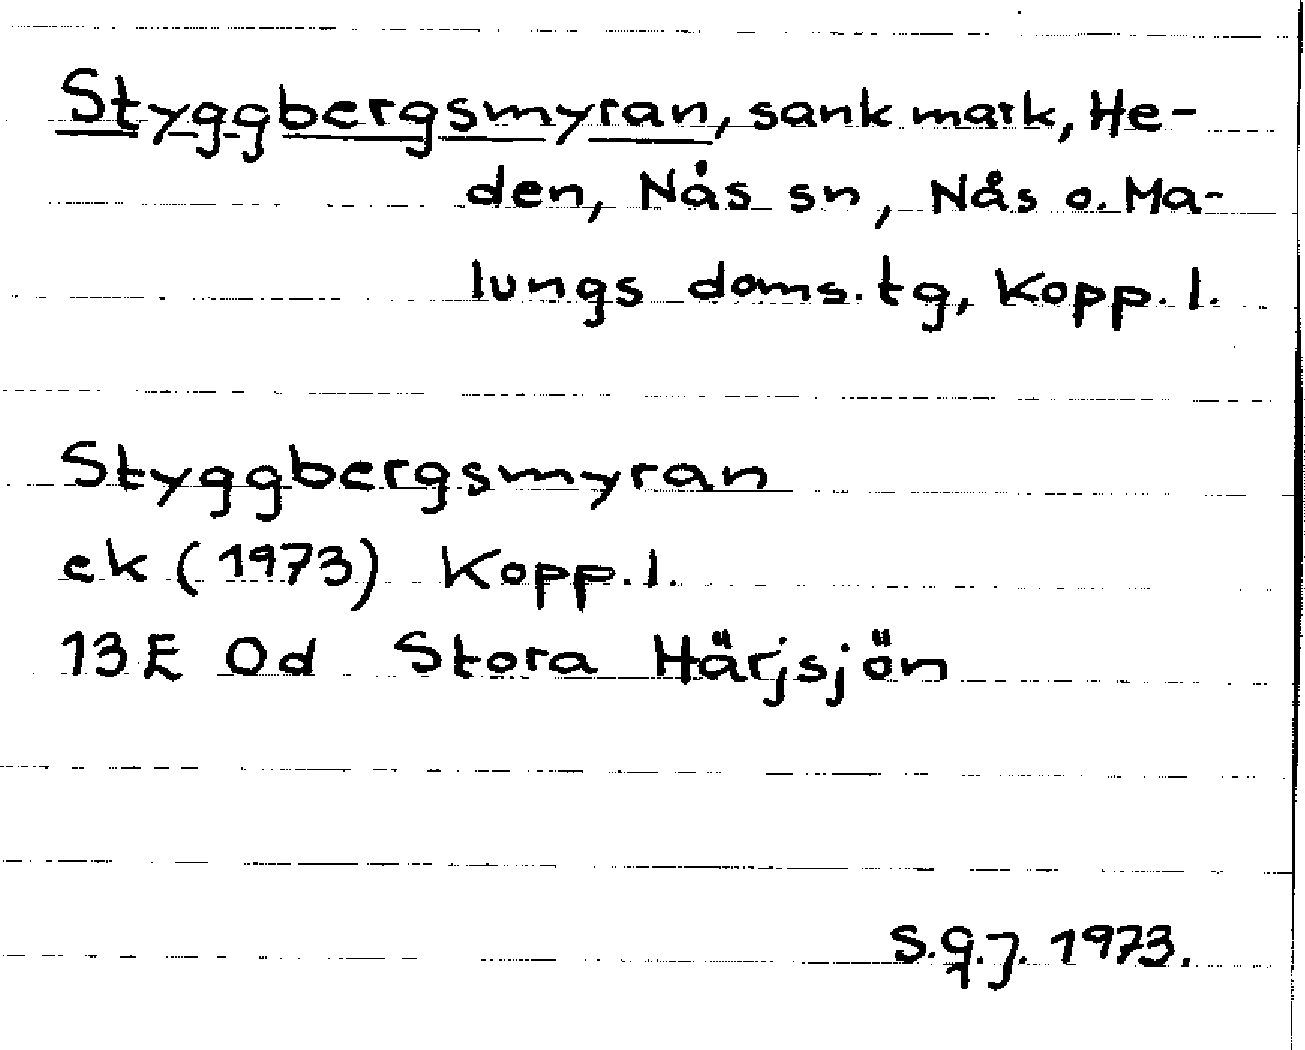 Styggbergsmyran, sank mark, He-
den, Nås sn, Nås o. Ma-
lungs doms. tg, Kopp. l.
Styggbergsmyran
ek (1973) Kopp. l.
13 E 0d Stora Härjsjön
S.G.J. 1973.